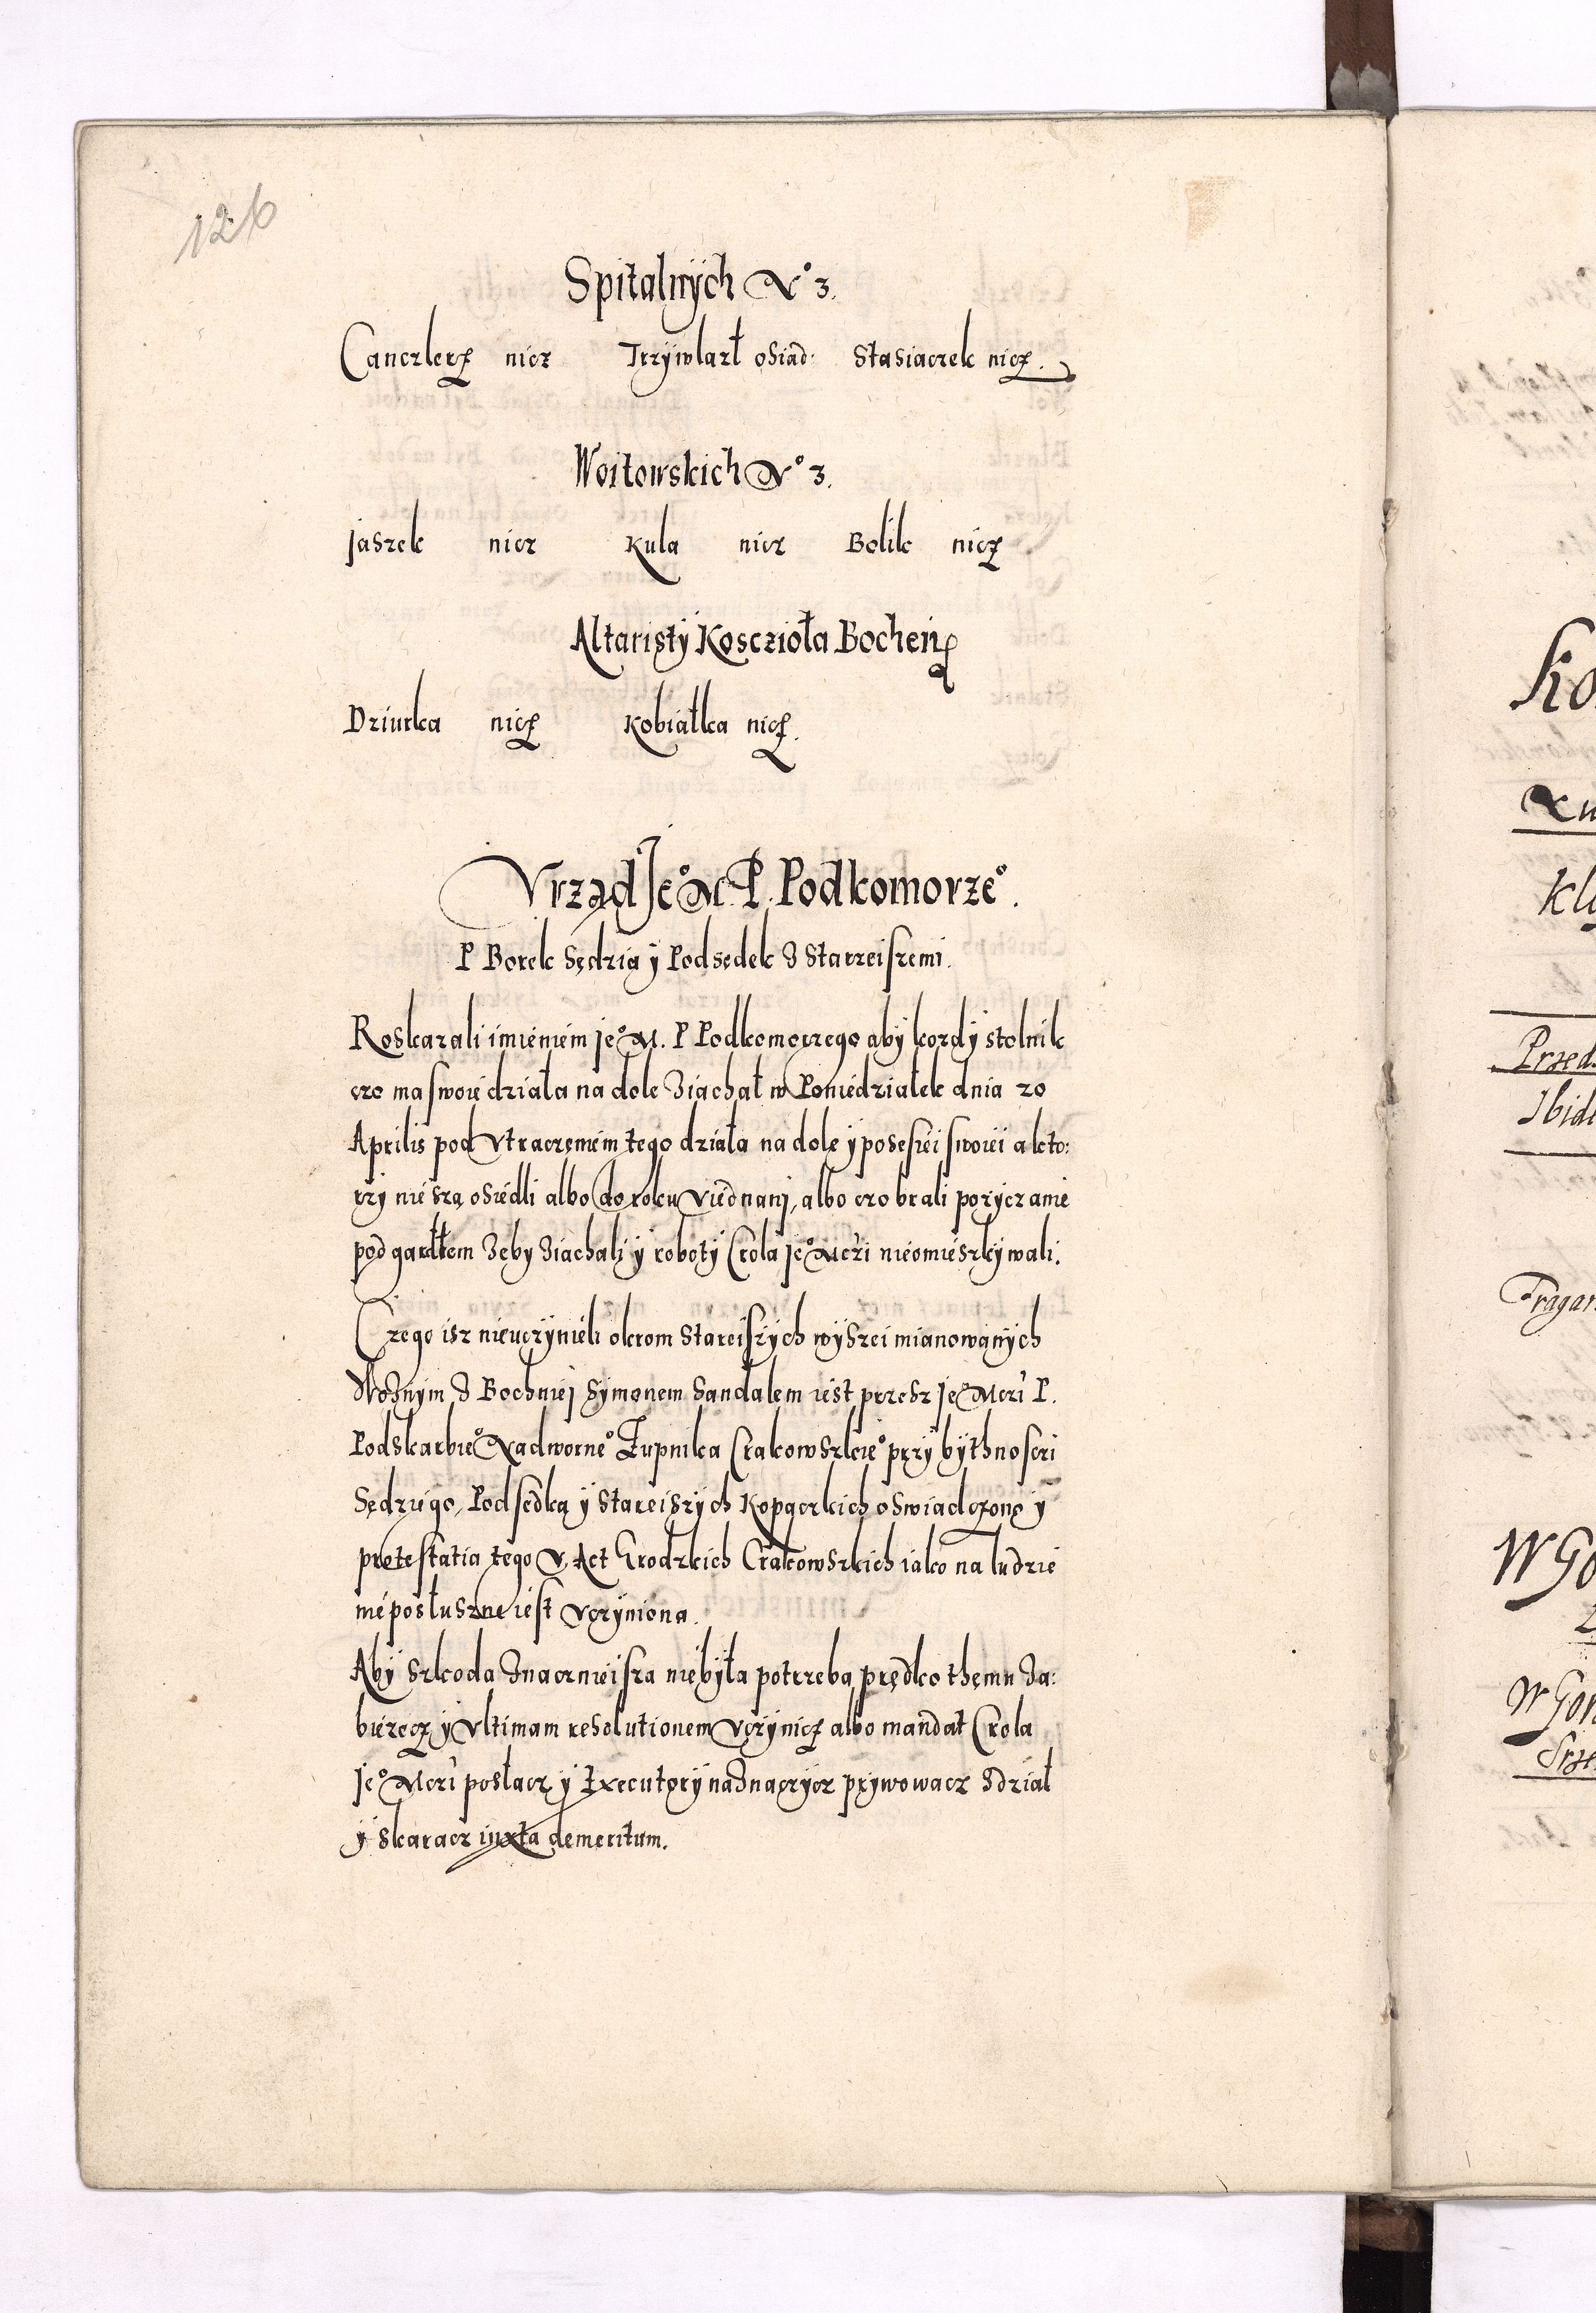 126
Spitalnych No 3.
Canczlerz nicz Trzywlazł osiad: Stasiaczek nicz.
Woitowskich No 3.
Jaszek nicz Kula nicz Bolik nicz
Altaristy Kosczioła Bochen
Dziurka nicz Kobiałka nicz.
Vrząd Jeo M. P. Podkomorzeo.
P Borek Sędzia y Podsędek z Starzeiszemi.
Roskazali imieniem jeo M. P Podkomorzego aby kozdy stolnik
czo ma swoie działa na dole ziachał w Poniedziałek dnia 20
Aprilis pod vtraczeniem tego działa na dole y posesiei swoiei a kto:
rzy nie szą osiedli albo do roku viednani, albo czo brali pozyczanie
pod gardłem zeby ziachali y roboty Crola jeo Mczi nieomieszkywali.
Czego isz nieuczynieli okrom stareiszych wyszei mianowanych
Woznym z Bochniej Symonem Sandalem iest przesz Jeo Mczi P.
Podskarbieo Nadworneo Żupnika Crakowszkieo przy bythnosczi
Sędziego, Podsędka y stareiszych Kopaczkich oswiadczono y
protestatia tego v Act Grodzkich Crakowszkich iako na ludzie
nieposłuszne iest vczyniona.
Aby szkoda znacznieisza niebyła potrzeba prędko themu za:
biezecz y vltimam resolutionem vczynicz albo mandat Crola
Jeo Mczi posłacz y Executory naznaczycz prziwowacz zdział
y skaracz iuxta demeritum.
Ko
Klu
Przed
Ibid
Tragar
W Go
W Gor
Srze